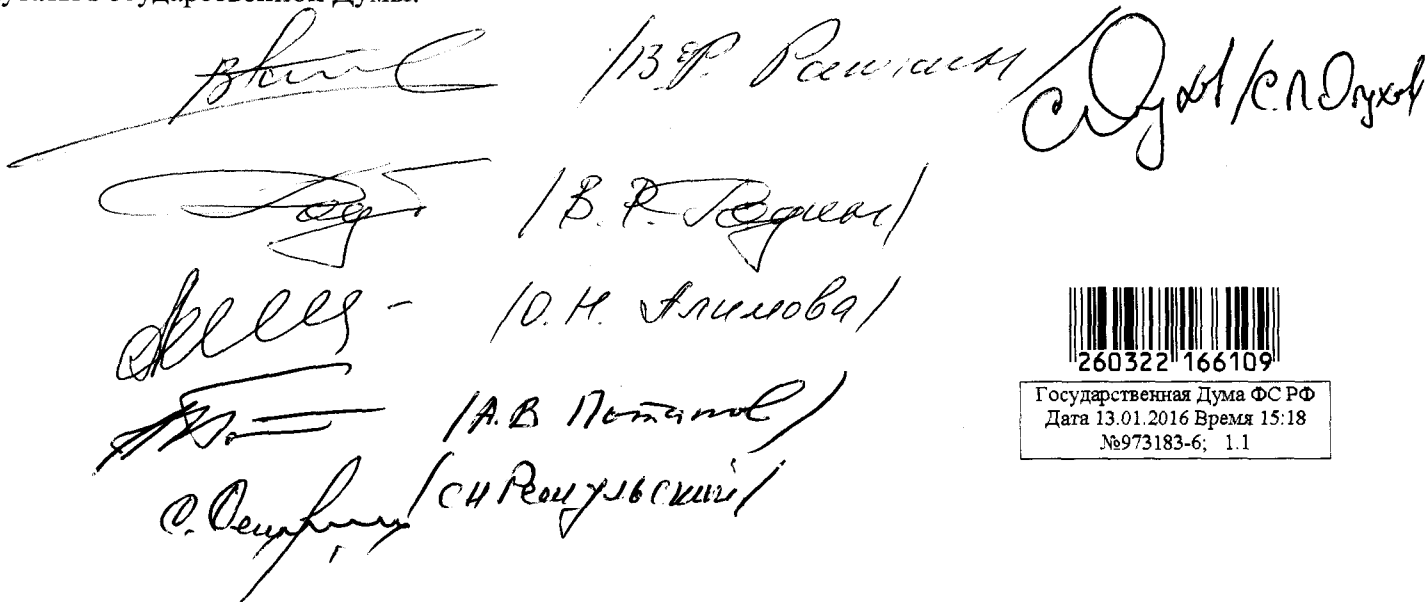 Государственной Думы:
/В.Ф. Рашкин
/С.П. Обухов
/В.Р. Родин/
/О.Н. Алимова/
/А.В Потапов/
/СН Решульский/
260322 166109
Государственная Дума ФС РФ
Дата 13.01.2016 Время 15:18
№973183-6; 1.1